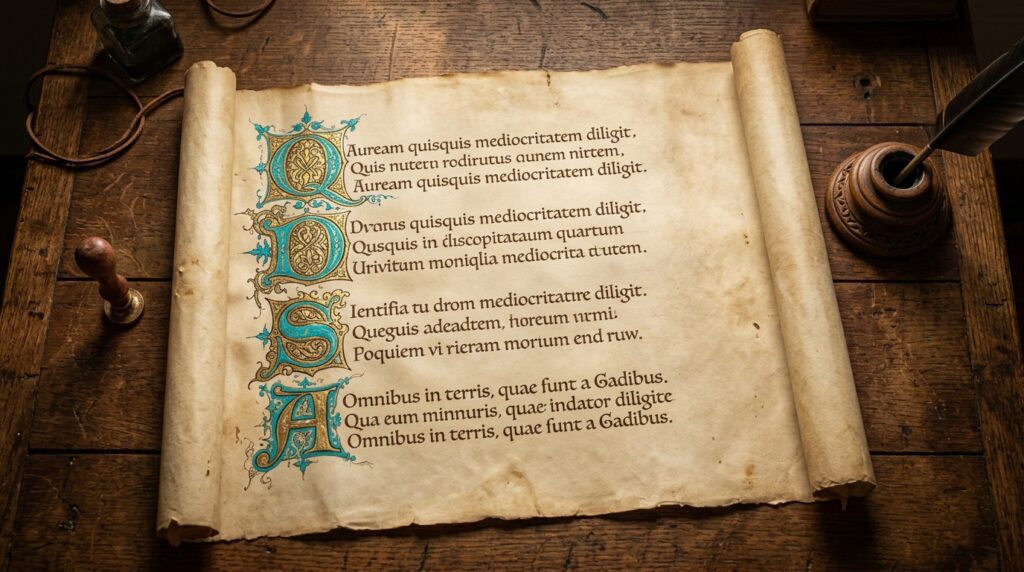 Q Auream quisquis mediocritatem diligit,
Quis nutetu rodirutus aunem nirtem,
Auream quisquis mediocritatem diligit.
D Dvatus quisquis mediocritatem diligit,
Qusquis in discopitataum quartum
Urivitum moniqlia mediocrita
S Ientifia tu drom mediocritatire diligit.
Queguis adeadtem, horeum
Poquiem vi rieram morium end ruw.
A Omnibus in terris, quae sunt a Gadibus.
Qua eum minnuris, quae indator diligite
Omnibus in terris, quae sunt a Gadibus.